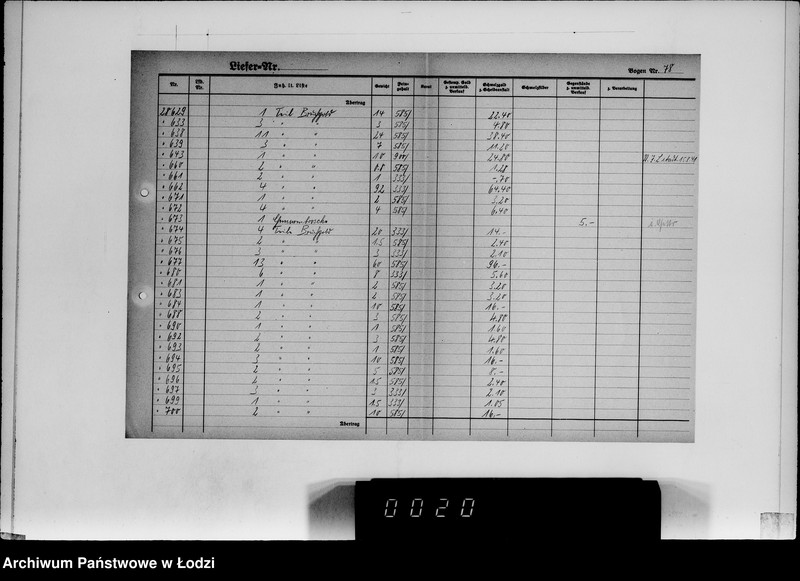 Liefer=Nr.
Bogen Nr. 78
Nr. Lfd. Nr. Inh. lt. Liste Gewicht Feingehalt Karat Schmelzgold z. Scheideanstalt Schmelzsilber Gegenstände z. unmittelb. Verkauf z. Verarbeitung
Übertrag
28629 1 Teil Bruchgold 14 585/ 22.40
" 633 3 " " 3 585/ 4.80
" 638 11 " " 24 585/ 38.40
" 639 3 " " 7 585/ 11.20
" 643 1 " " 10 900/ 24.80
" 660 2 " " 0.8 585/ 1.28
" 661 2 " " 1 333/ -.70
" 662 4 " " 92 333/ 64.40
" 671 1 " " 2 585/ 3.20
" 672 4 " " 4 585/ 6.40
" 673 1 5.-
" 674 4 Teile Bruchgold 20 333/ 14.-
" 675 2 " " 1.5 585/ 2.40
" 676 3 " " 3 333/ 2.10
" 677 13 " " 60 585/ 96.-
" 680 6 " " 8 333/ 5.60
" 681 1 " " 2 585/ 3.20
" 683 1 " " 2 585/ 3.20
" 684 1 " " 10 585/ 16.-
" 688 2 " " 3 585/ 4.80
" 690 1 " " 1 585/ 1.60
" 692 2 " " 3 585/ 4.80
" 693 2 " " 1 585/ 1.60
" 694 3 " " 10 585/ 16.-
" 695 2 " " 5 585/ 8.-
" 696 2 " " 1.5 585/ 2.40
" 697 3 " " 3 333/ 2.10
" 699 1 " " 1.5 333/ 1.05
" 700 2 " " 10 585/ 16.-
Übertrag
0020
Archiwum Państwowe w Łodzi